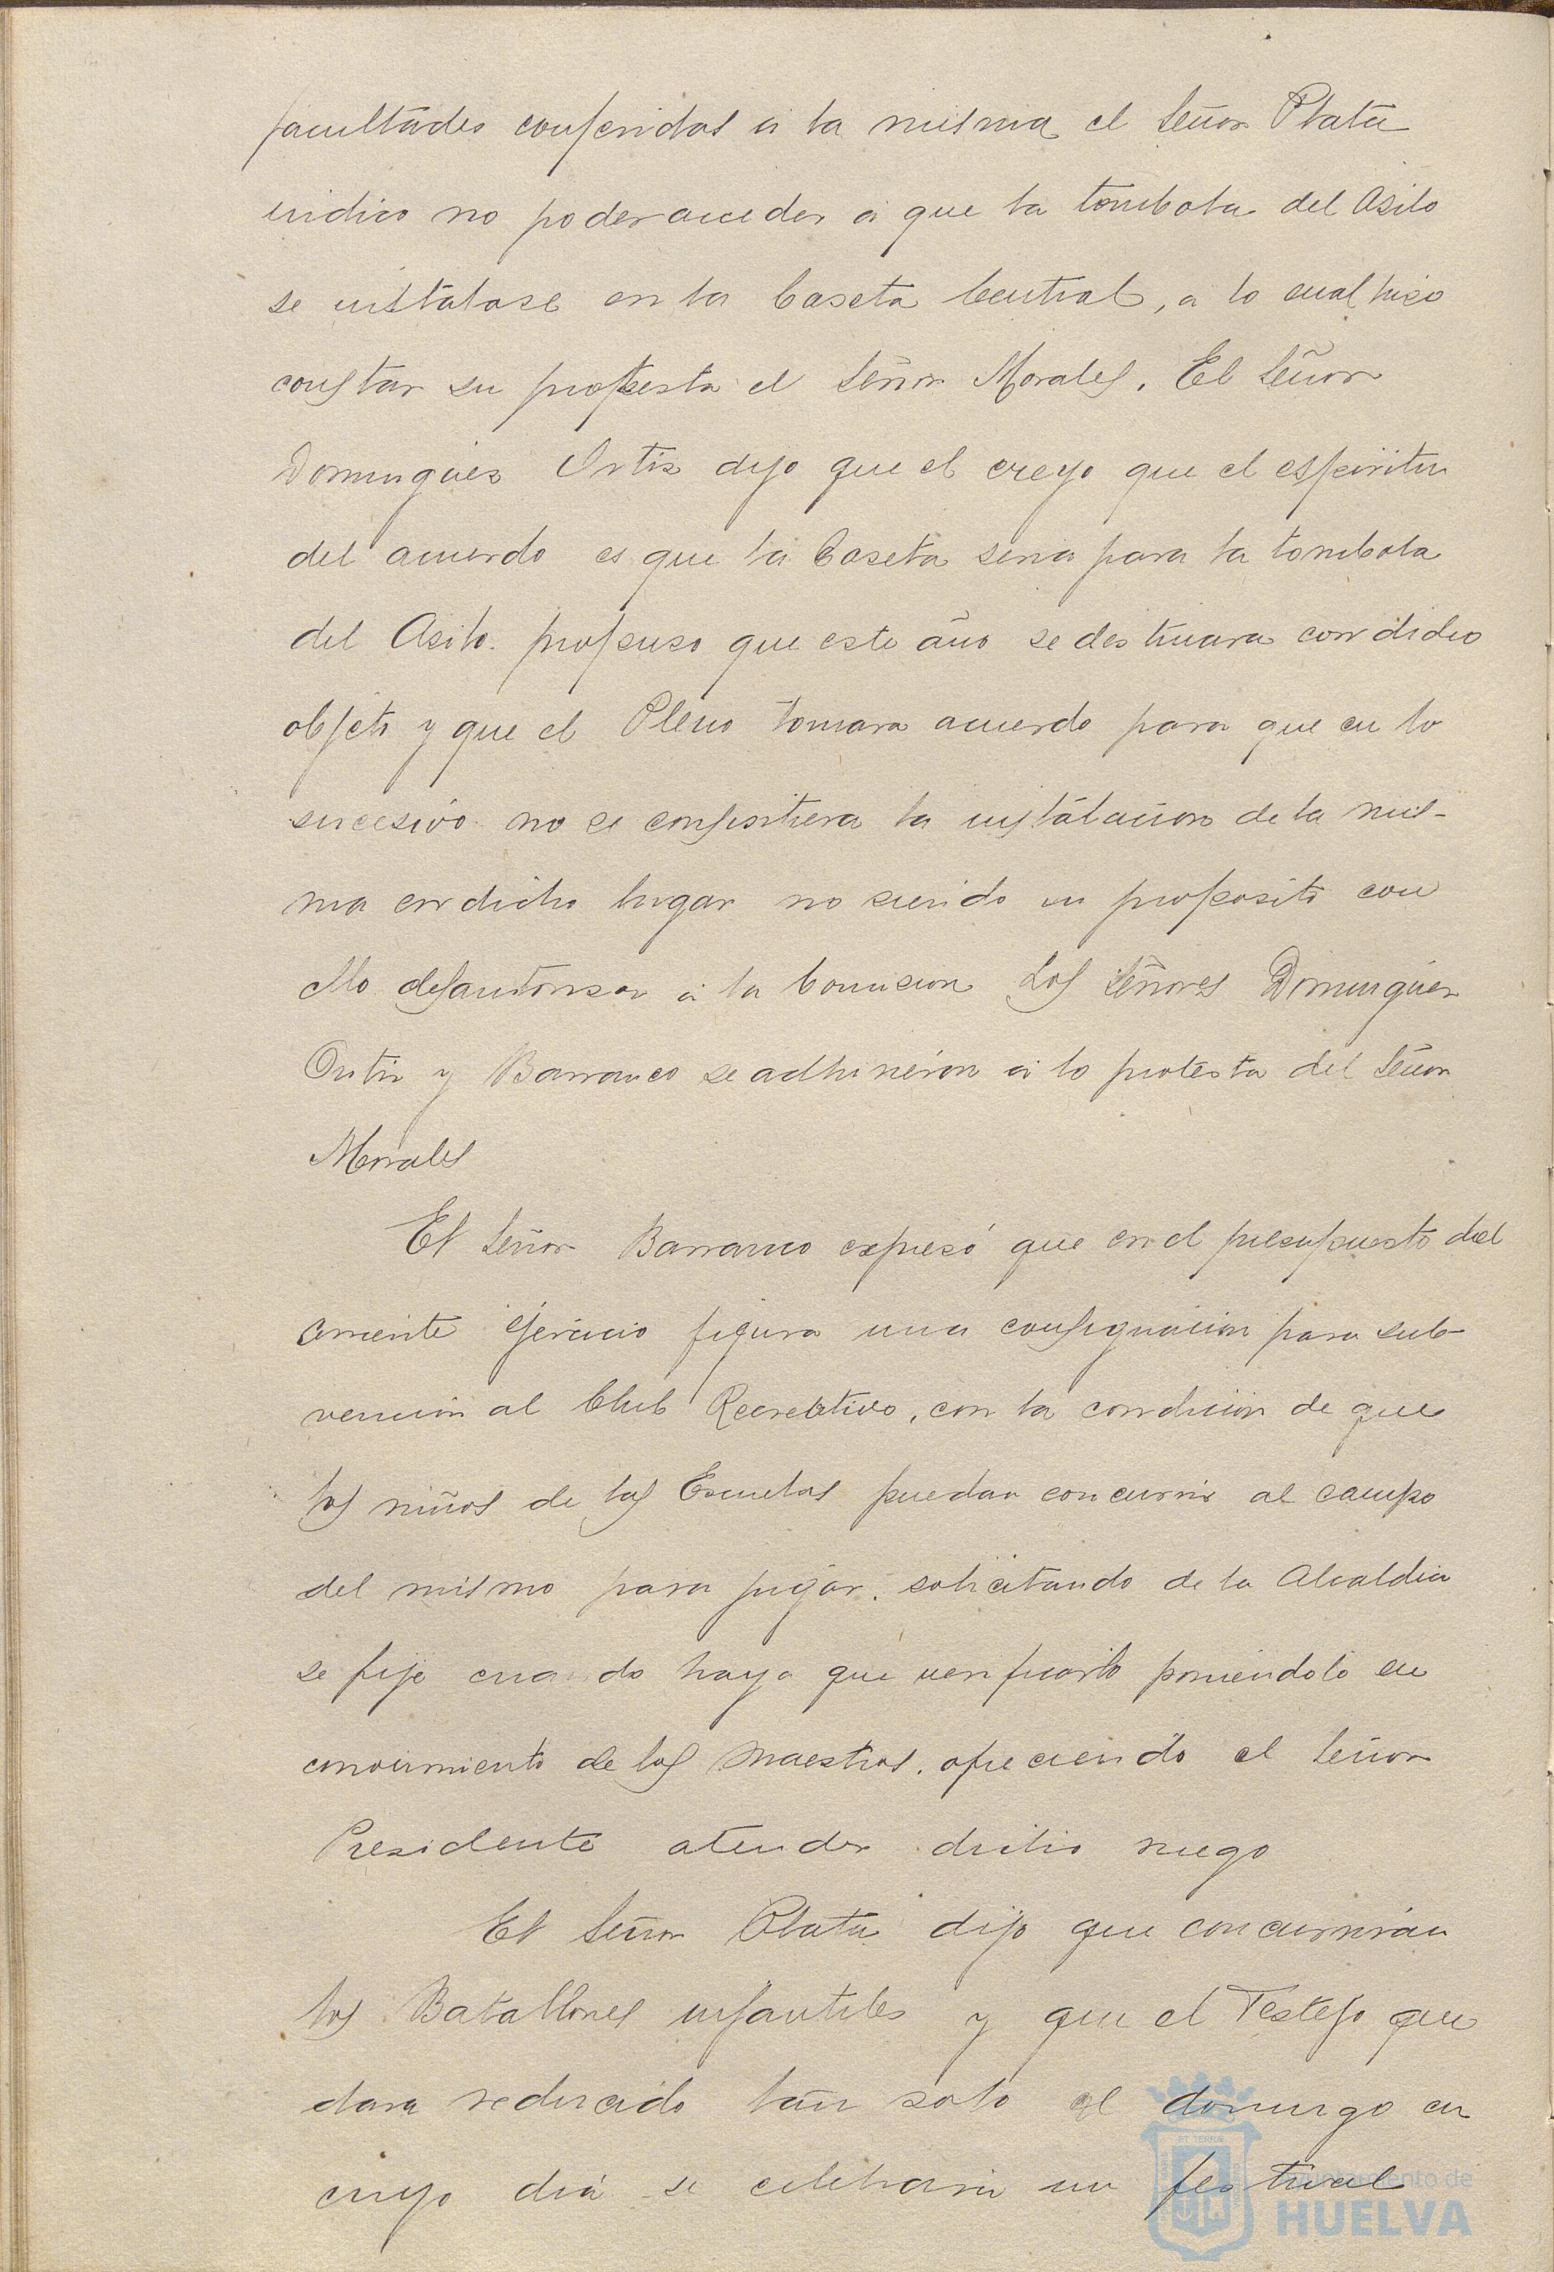 facultades conferidas a la misma el Señor Plata
indico no poder acceder a que la tombola del Asilo
se instalase en la Caseta Central, a lo cual hizo
constar su protesta el Señor Morales. El Señor
Dominguez Ortiz dijo que el creyo que el espiritu
del acuerdo es que la Caseta seria para la tombola
del Asilo. propuso que este año se destinara con dicho
objeto y que el Pleno tomara acuerdo para que en lo
sucesivo no se consintiera la instalacion de la mis-
ma en dicho lugar no siendo su proposito con
ello desautorisar a la Comision Los Señores Dominguez
Ortiz y Barranco se adhirieron a la protesta del Señor
Morales
El Señor Barranco expresó que en el presupuesto del
corriente ejercicio figura una consignacion para sub-
vencion al Club Recreativo, con la condicion de que
los niños de las Escuelas puedan concurrir al campo
del mismo para jugar. solicitando de la Alcaldia
se fije cuando haya que verificarlo poniendolo en
conocimiento de los Maestros. ofreciendo el Señor
Presidente atender dicho ruego
El Señor Plata dijo que concurrirán
los Batallones infantiles y que el Festejo que
dara reducido tan solo al domingo en
cuyo dia se celebrara un festival
Ayuntamiento de
HUELVA